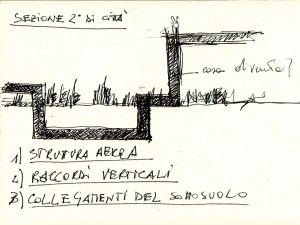 SEZIONE 2° DI CITTÀ
casa di vanità?
1) STRUTTURA AEREA
2) RACCORDI VERTICALI
3) COLLEGAMENTI DEL SOTTOSUOLO